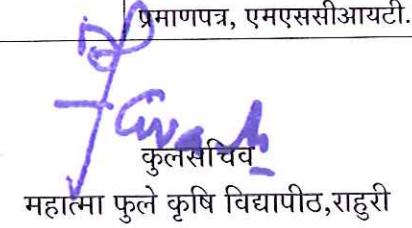 प्रमाणपत्र, एमएससीआयटी.
कुलसचिव
महात्मा फुले कृषि विद्यापीठ,राहुरी